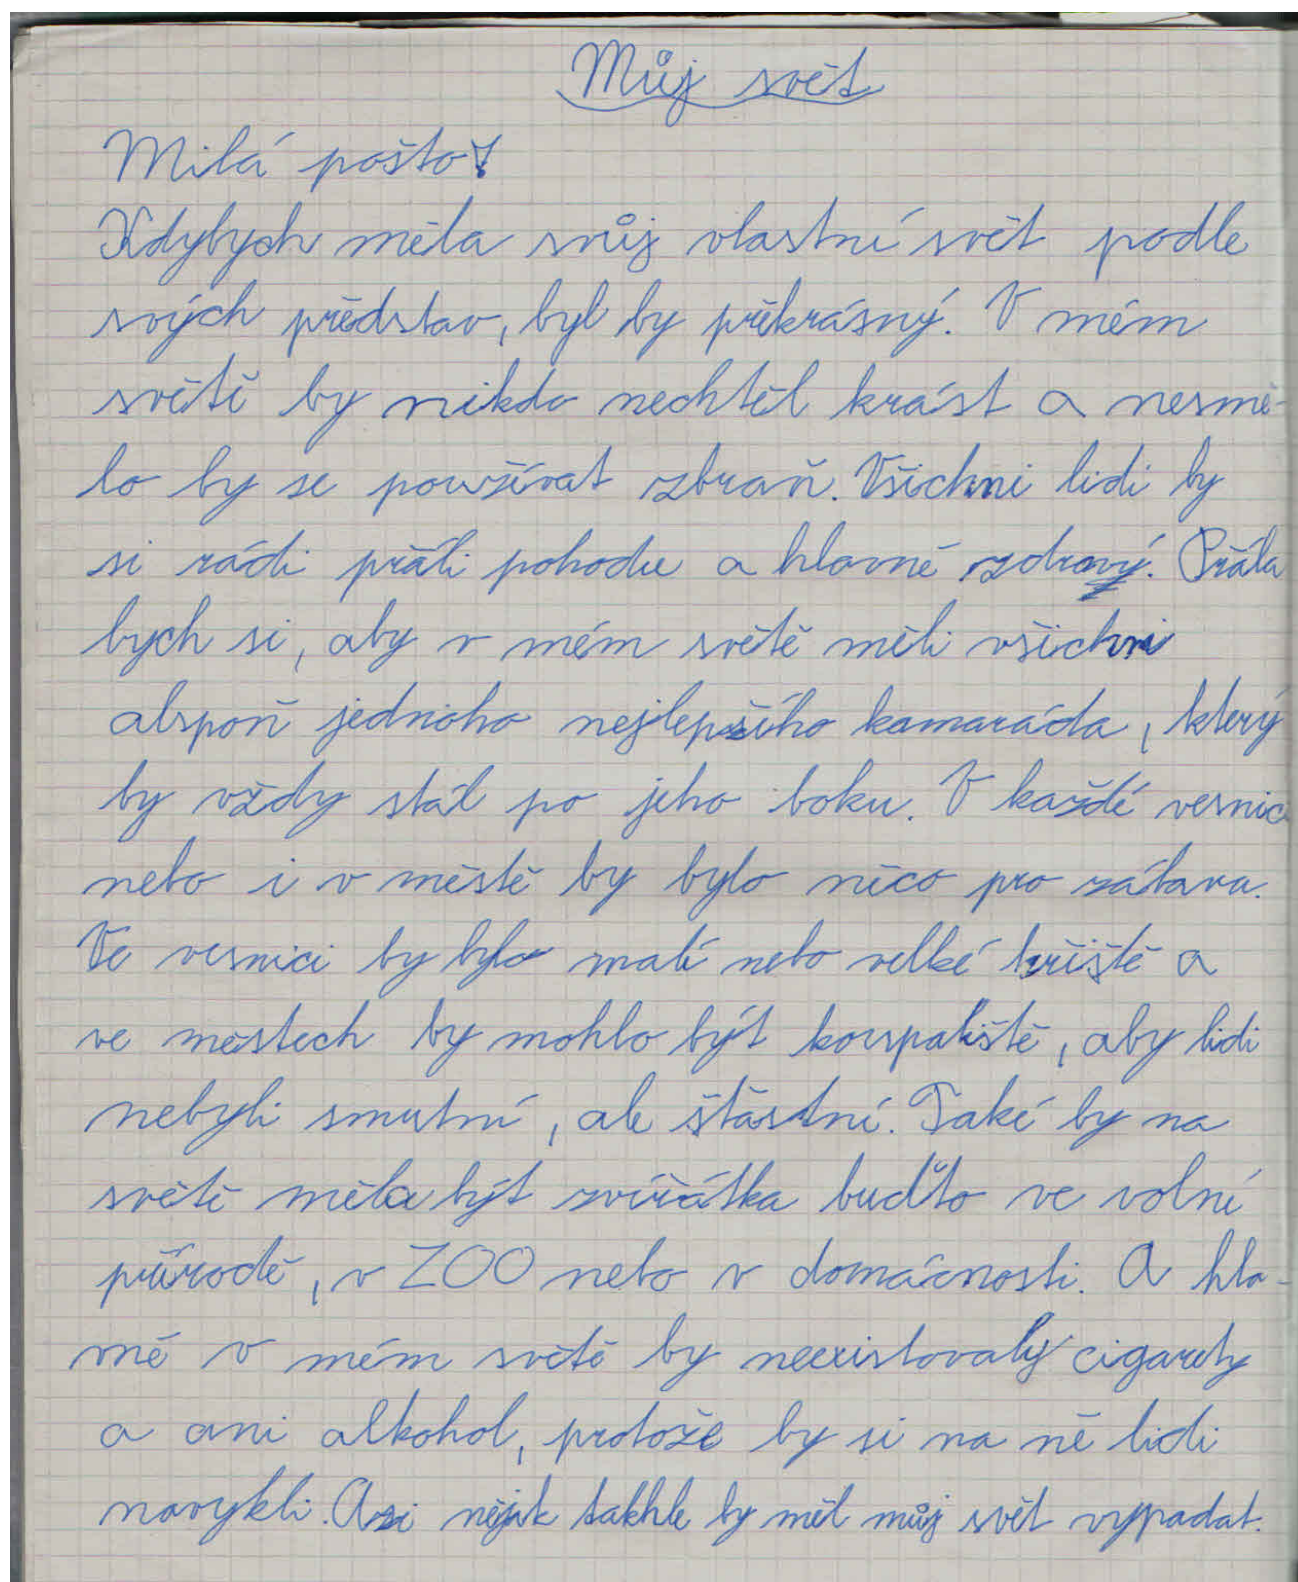 Můj svět
Milá pošto!
Kdybych měla svůj vlastní svět podle
svých představ, byl by překrásný. V mém
světě by nikdo nechtěl krást a nesmě-
lo by se používat zbraň. Všichni lidi by
si rádi přáli pohodu a hlavně zdraví. Přála
bych si, aby v mém světě měli všichni
alspoň jednoho nejlepšího kamaráda, který
by vždy stál po jeho boku. V každé vesnic
nebo i v městě by bylo něco pro zábavu.
Ve vesnici by bylo malé nebo velké hřiště a
ve městech by mohlo být koupaliště, aby lidi
nebyli smutní, ale šťastní. Také by na
světě měla být zvířátka buďto ve volné
přírodě, v ZOO nebo v domácnosti. A hla-
vně v mém světě by neexistovaly cigarety
a ani alkohol, protože by si na ně lidi
navykli. Asi nějak takhle by měl můj svět vypadat.